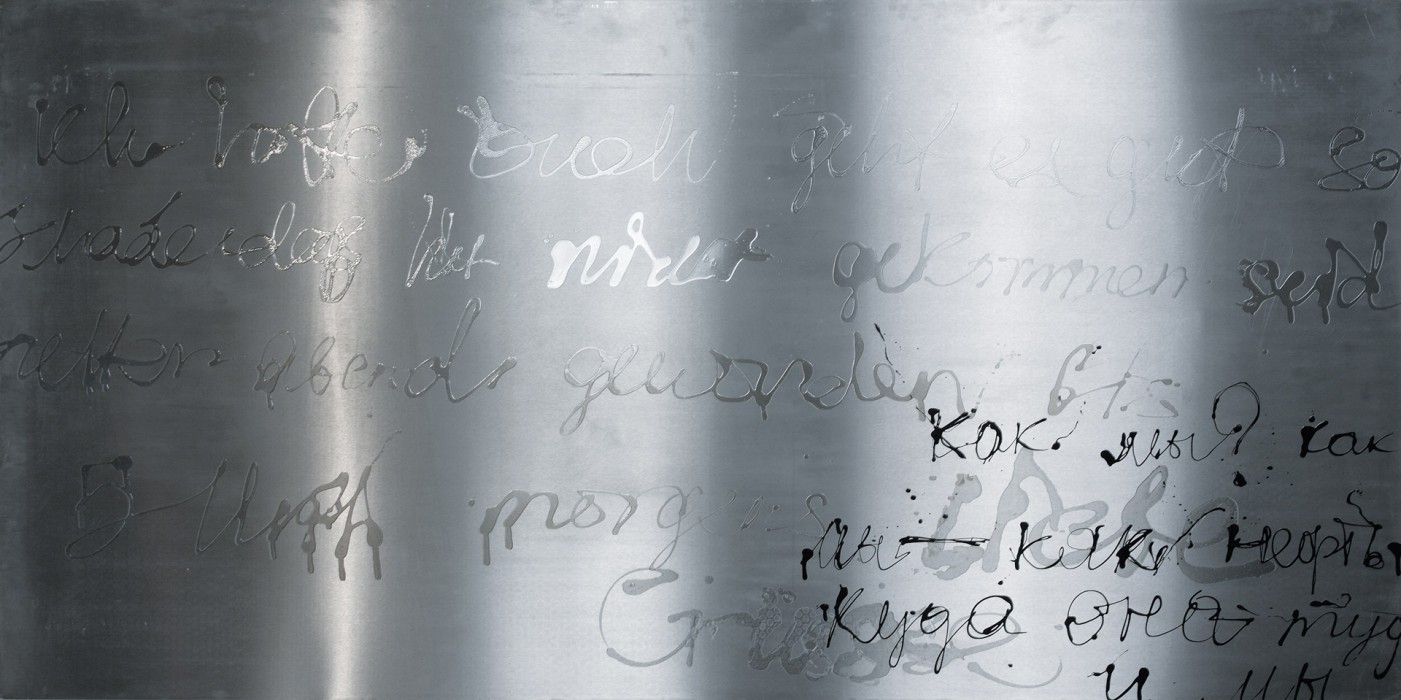 ich hoffe, Euch geht es gut so
schade daß Ihr nicht gekommen seid
netter abend geworden bis
5 Uhr morgens Liebe
Grüsse
Как мы? как
мы — как нефть,
куда она туд
и мы